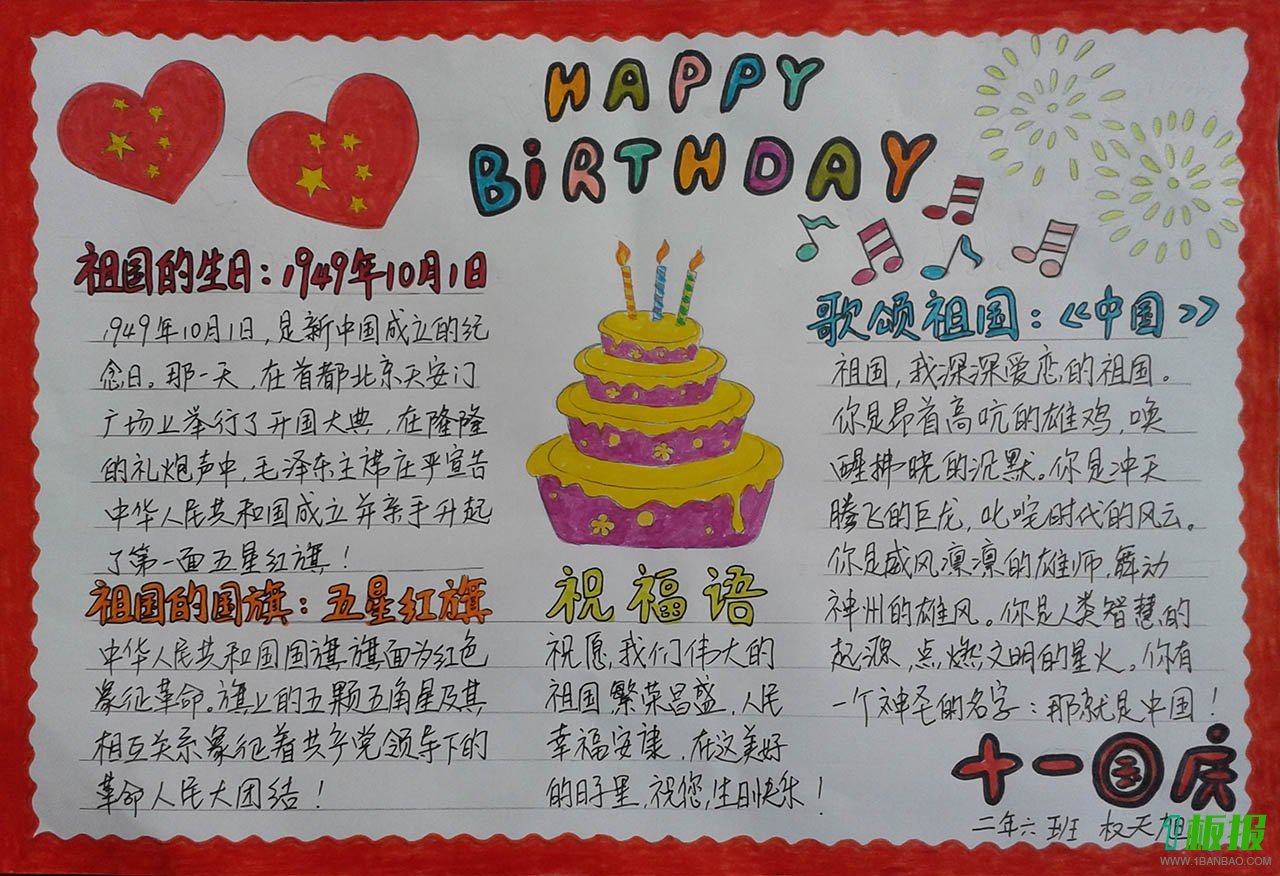 HAPPY
BiRTHDAY
祖国的生日：1949年10月1日
1949年10月1日，是新中国成立的纪
念日。那一天，在首都北京天安门
广场上举行了开国大典，在隆隆
的礼炮声中，毛泽东主席庄严宣告
中华人民共和国成立并亲手升起
了第一面五星红旗！
祖国的国旗：五星红旗
中华人民共和国国旗旗面为红色
象征革命。旗上的五颗五角星及其
相互关系象征着共产党领导下的
革命人民大团结！
祝福语
祝愿，我们伟大的
祖国，繁荣昌盛，人民
幸福安康，在这美好
的日子里，祝您，生日快乐！
歌颂祖国：《中国》
祖国，我深深爱恋的祖国。
你是昂首高吭的雄鸡，唤
醒拂晓的沉默。你是冲天
腾飞的巨龙，叱咤时代的风云。
你是威风凛凛的雄师，舞动
神州的雄风。你是人类智慧的
起源，点燃文明的星火。你有
一个神圣的名字：那就是中国！
十一国庆
二年六班 权天旭
1板报
WWW.1BANBAO.COM